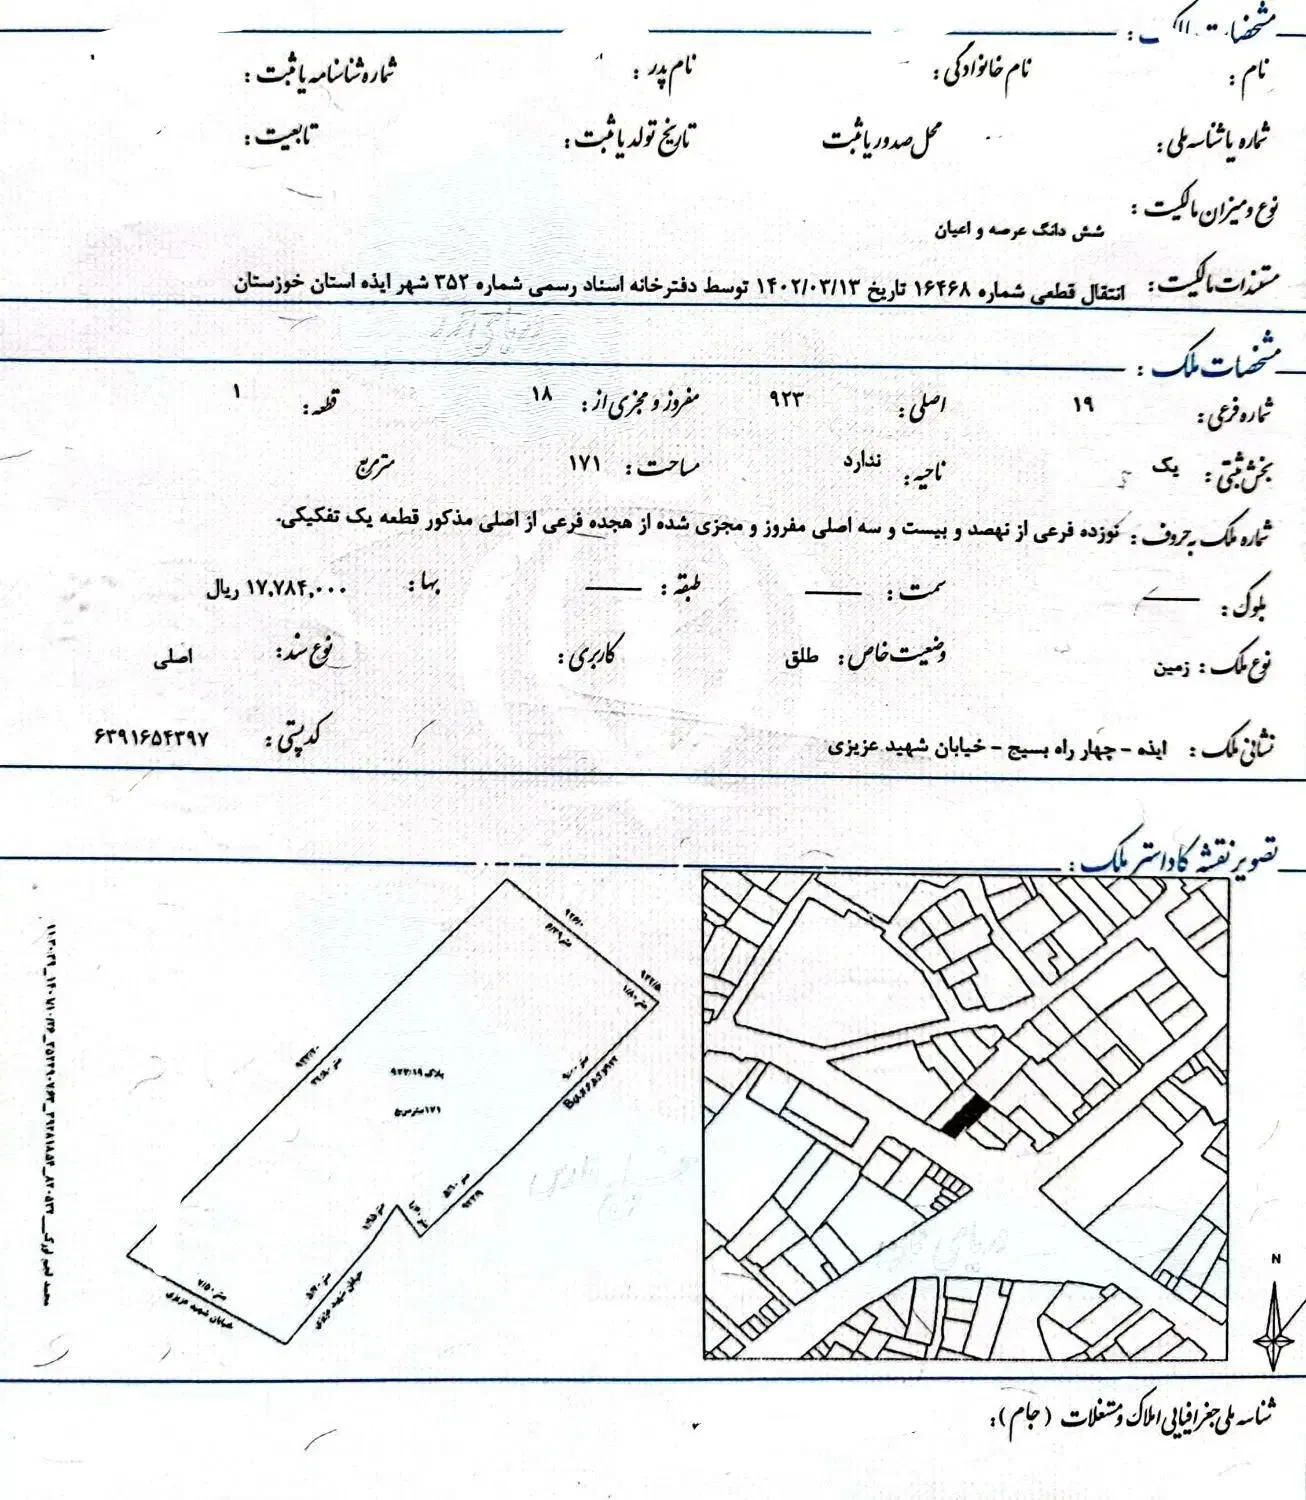 مشخصات مالک :
نام : نام خانوادگی : نام پدر : شماره شناسنامه یا ثبت :
شماره یا شناسه ملی : محل صدور یا ثبت تاریخ تولد یا ثبت : تابعیت :
نوع و میزان مالکیت :
شش دانگ عرصه و اعیان
مستندات مالکیت : انتقال قطعی شماره ۱۶۴۶۸ تاریخ ۱۴۰۲/۰۳/۱۳ توسط دفترخانه اسناد رسمی شماره ۳۵۲ شهر ایذه استان خوزستان
مشخصات ملک :
شماره فرعی : ۱۹ اصلی : ۹۲۳ مفروز و مجزی از : ۱۸ قطعه : ۱
بخش ثبتی : یک ناحیه : ندارد مساحت : ۱۷۱ مترمربع
شماره ملک به حروف : نوزده فرعی از نهصد و بیست و سه اصلی مفروز و مجزی شده از هجده فرعی از اصلی مذکور قطعه یک تفکیکی.
بلوک : ——— سمت : ——— طبقه : ——— بها : ۱۷,۷۸۴,۰۰۰ ریال
نوع ملک : زمین وضعیت خاص : طلق کاربری : نوع سند : اصلی
نشانی ملک : ایذه - چهار راه بسیج - خیابان شهید عزیزی کد پستی : ۶۳۹۱۶۵۴۳۹۷
تصویر نقشه کاداستر ملک :
پلاک ۹۲۳/۱۹
۱۷۱ مترمربع
متر ۷/۵۰
خیابان شهید عزیزی
خیابان شهید عزیزی
N
شناسه ملی جغرافیایی املاک و مستغلات (جام) :